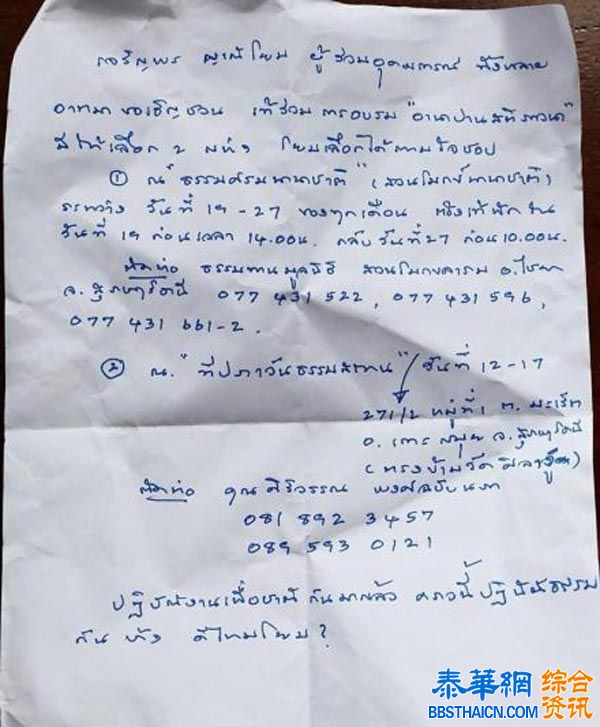 เจริญพร ญาติโยม ผู้ร่วมอุดมการณ์ ทั้งหลาย
อาตมา ขอเชิญชวน เข้าร่วม การอบรม "อานาปานสติภาวนา"
มีให้เลือก ๒ แห่ง โยมเลือกได้ตามใจชอบ
① ณ "ธรรมาศรมนานาชาติ" (สวนโมกข์นานาชาติ)
ระหว่าง วันที่ 19 - 27 ของทุกเดือน ต้องเข้าพักใน
วันที่ 19 ก่อนเวลา 14.00น. กลับวันที่ 27 ก่อน 10.00น.
ติดต่อ ธรรมทานมูลนิธิ สวนโมกขพลาราม อ.ไชยา
จ.สุราษฎร์ธานี 077 431 522, 077 431 596,
077 431 661-2.
② ณ. "ทีปภาวันธรรมสถาน" วันที่ 12-17
271/2 หมู่ที่ 1 ต. มะเร็ต
อ. เกาะสมุย จ. สุราษฎร์ธานี
(ตรงข้ามวัดศิลางู)
ติดต่อ คุณ ศิริวรรณ
081 892 3457
089 593 0121
ปฏิบัติงานเพื่อชาติ กันมาแล้ว คราวนี้ ปฏิบัติธรรม
กัน บ้าง ดีไหมโยม?
泰華網 综合资讯
BBSTHAICN.COM